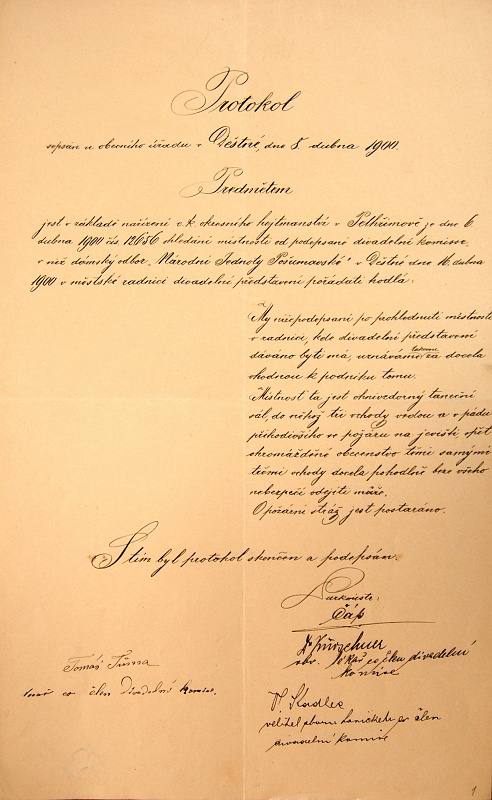 Protokol
sepsán u obecního úřadu v Deštné, dne 8. dubna 1900.
Předmětem
jest v základě nařízení c. k. okresního hejtmanství v Pelhřimově je dne 6.
dubna 1900 čís. 12656 ohledání místnosti od podepsané divadelní komisse,
v níž dámský odbor „Národní Jednoty Pošumavské" v Deštné dne 16. dubna
1900 v městské radnici divadelní představení pořádati hodlá:
My níže podepsaní po prohlednutí místnosti
v radnici, kde divadelní představení
dáváno býti má, uznáváme takovou za docela
vhodnou k podniku tomu.
Místnost ta jest ohnivzdorný taneční
sál, do něhož tři vchody vedou a v pádu
přihodivšího se požáru na jevišti, opět
shromážděné obecenstvo těmi samými
třemi vchody docela pohodlně beze všeho
nebezpečí odejíti může.
O požární stráž jest postaráno.
S tím byl protokol skončen a podepsán.
Purkmistr:
Čáp
Tomáš Tůma
co člen divadelní komise.
Dr
obv. lékař co člen divadelní
komise
Kadlec
velitel sboru co člen
divadelní komise
1